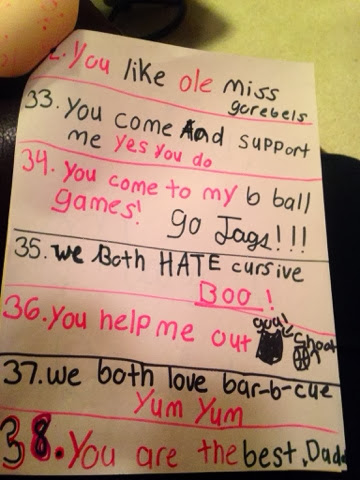 2. You like ole miss
gorebels
33. You come And support
me yes you do
34. You come to my b ball
games!
go Jags!!!
35. we Both HATE cursive
Boo!
36. You help me out
goal
Shoot
37. we both love bar-b-cue
Yum Yum
38. You are the best, Dad